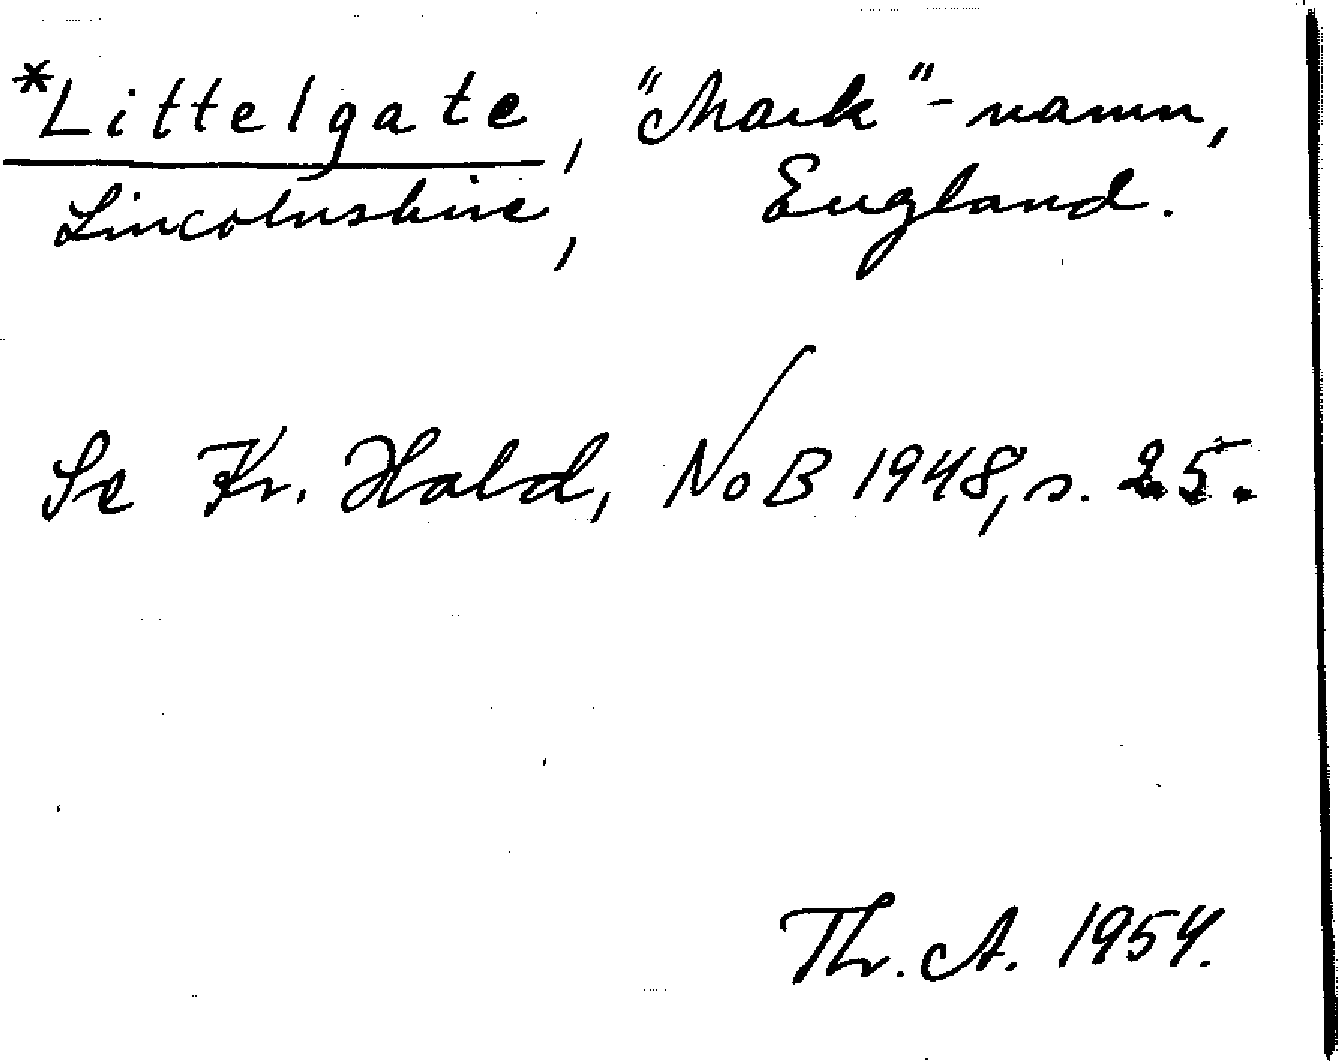 *Littelgate, "Mark"-namn,
Lincolnshire, England.
Se Kr. Hald, NoB 1948, s. 25.
Th. A. 1954.